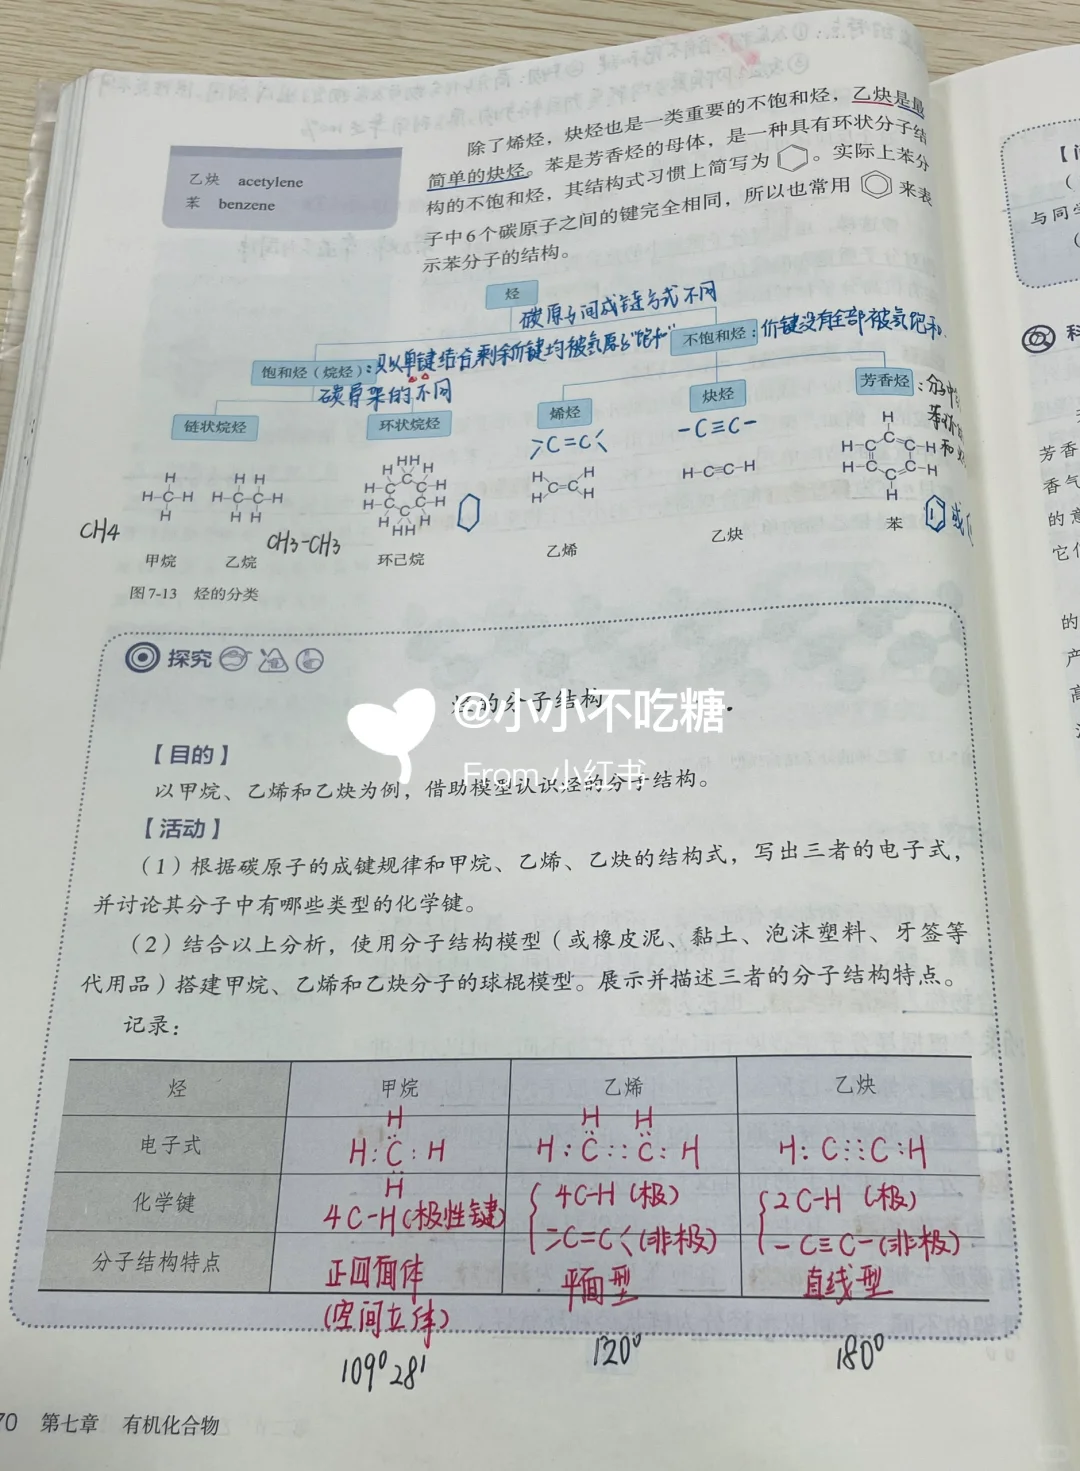 除了烯烃，炔烃也是一类重要的不饱和烃，乙炔是最
简单的炔烃。苯是芳香烃的母体，是一种具有环状分子结
构的不饱和烃，其结构式习惯上简写为。实际上苯分
子中6个碳原子之间的键完全相同，所以也常用来表
示苯分子的结构。
乙炔 acetylene
苯 benzene
烃
碳原子间成键方式不同
饱和烃（烷烃）：只以单键结合剩余价键均被氢原子"饱和"
不饱和烃：价键没有全部被氢饱和
碳骨架的不同
链状烷烃
环状烷烃
烯烃
炔烃
芳香烃：分子中
C=C
-C≡C-
H-C≡C-H
CH4
CH3-CH3
甲烷
乙烷
环己烷
乙烯
乙炔
苯
或
图7-13 烃的分类
探究
烃的分子结构
@小小不吃糖
From 小红书
【目的】
以甲烷、乙烯和乙炔为例，借助模型认识烃的分子结构。
【活动】
（1）根据碳原子的成键规律和甲烷、乙烯、乙炔的结构式，写出三者的电子式，
并讨论其分子中有哪些类型的化学键。
（2）结合以上分析，使用分子结构模型（或橡皮泥、黏土、泡沫塑料、牙签等
代用品）搭建甲烷、乙烯和乙炔分子的球棍模型。展示并描述三者的分子结构特点。
记录：
烃 甲烷 乙烯 乙炔
H H H
电子式 H:C:H H:C::C:H H:C⋮⋮C:H
H
化学键 4C-H(极性键) 4C-H（极） 2C-H （极）
>C=C<(非极) -C≡C-(非极)
分子结构特点 正四面体 平面型 直线型
(空间立体)
109°28' 120° 180°
70 第七章 有机化合物
与同学
科
芳香
香气
的意
它们
的
产
高